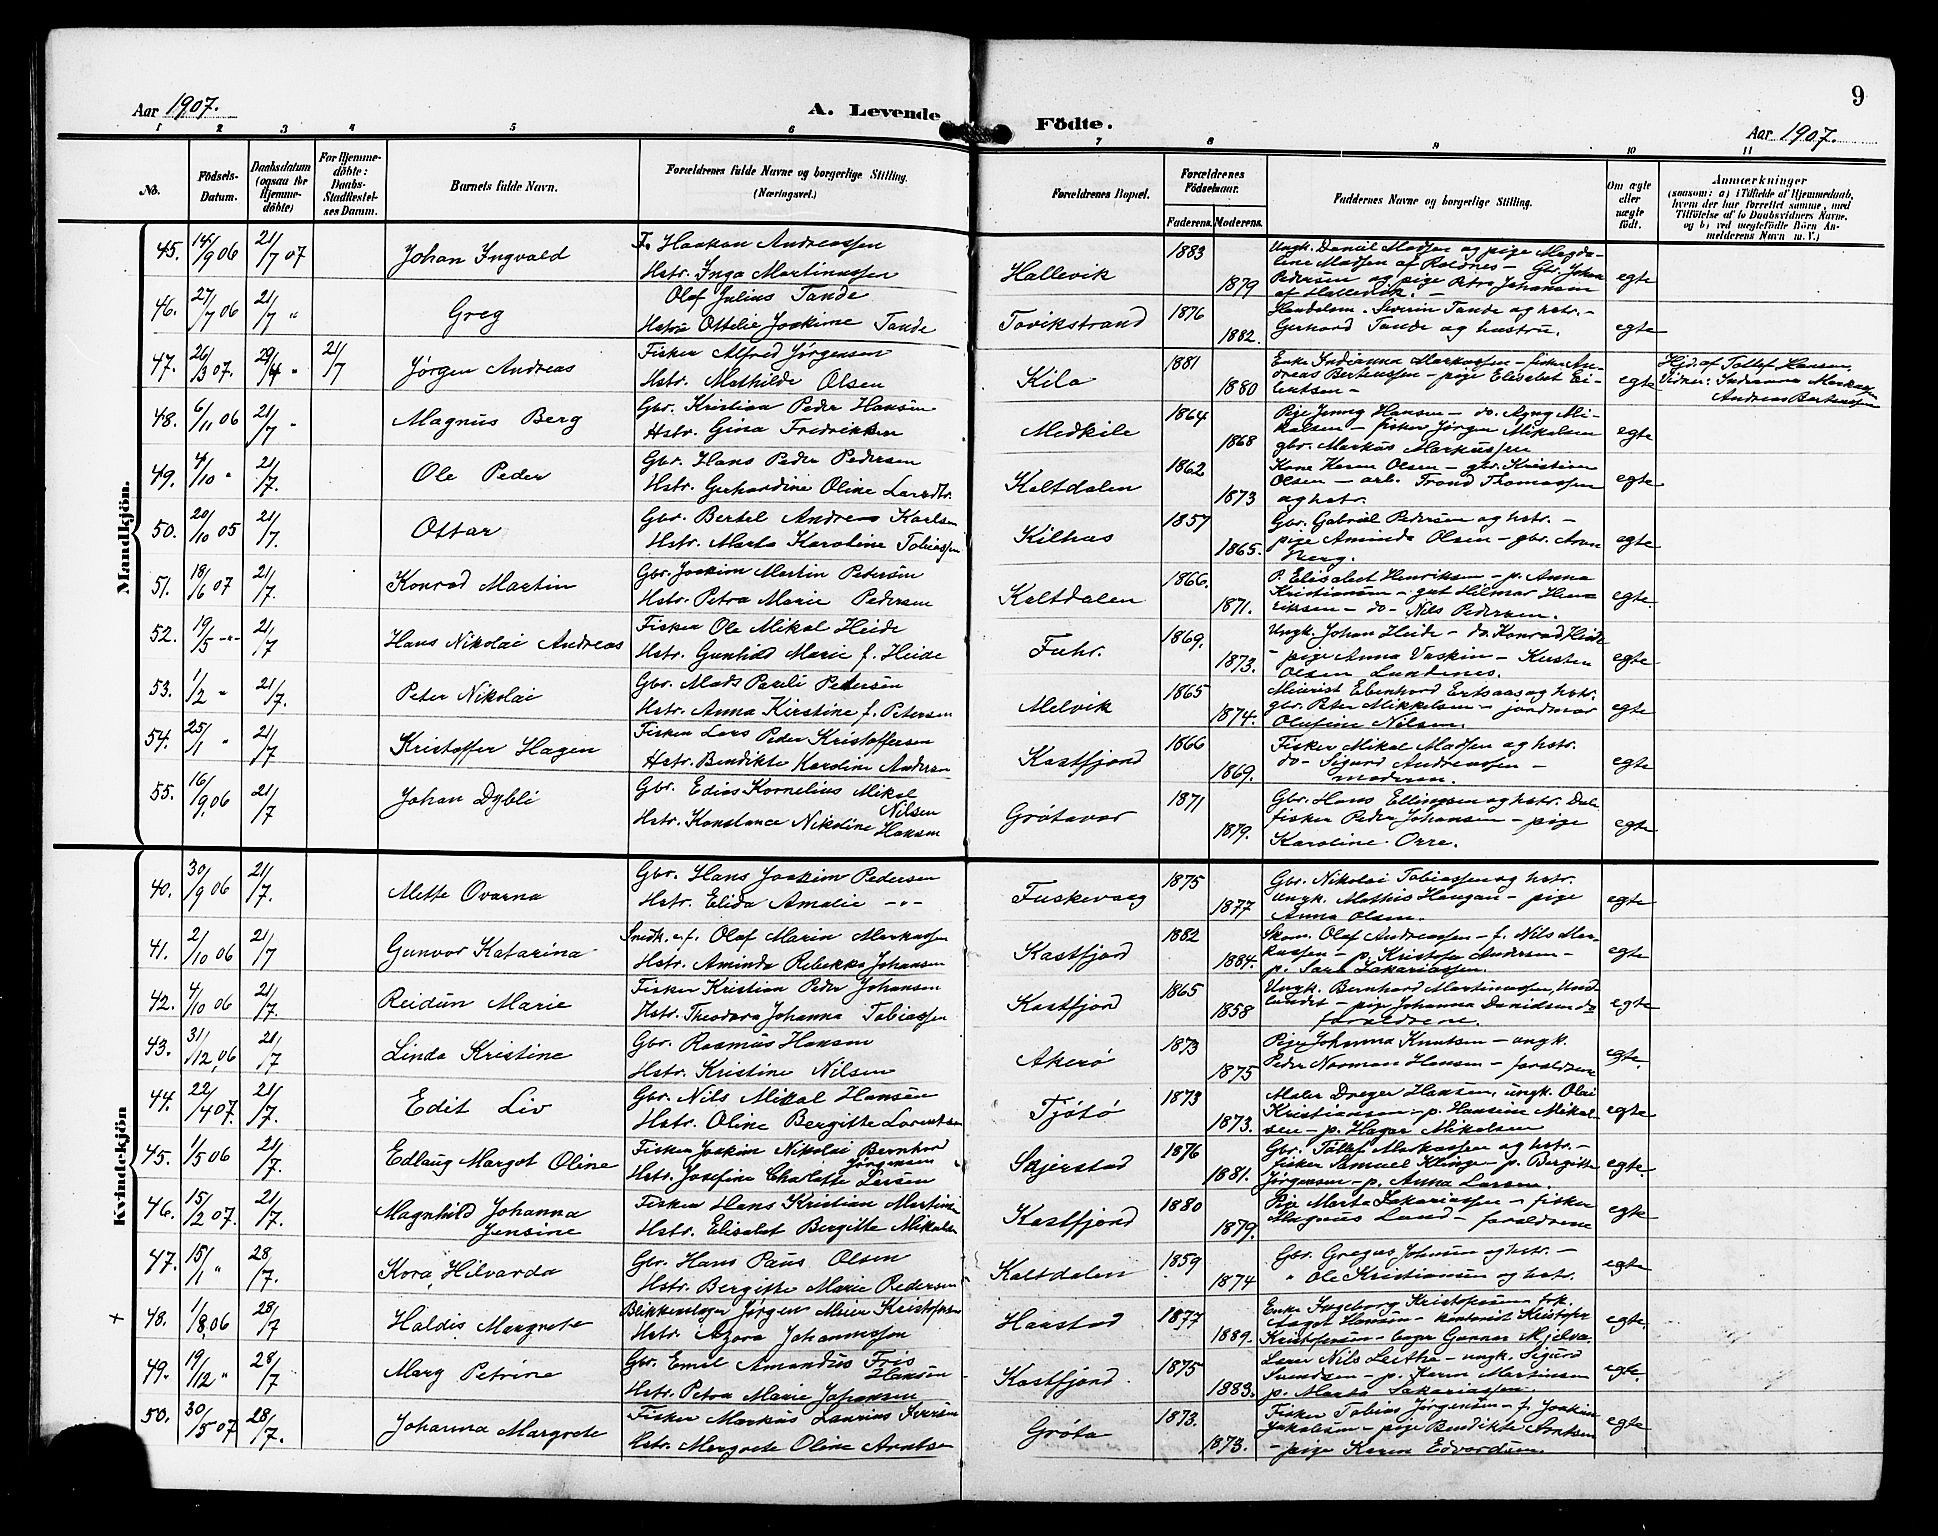 9
Aar 1907. A. Levende Födte. Aar 1907.
1 2 3 4 5 6 7 8 9 10 11
No. Födsels-Datum. Daabsdatum (ogsaa for Hjemme-döbte) For Hjemme-döbte: Daabs-Stadfæstel-ses Datum. Barnets fulde Navn. Forældrenes fulde Navne og borgerlige Stilling. (Næringsvei.) Forældrenes Bopæl. Forældrenes Födselsaar. Faderens. Moderens. Faddernes Navne og borgerlige Stilling. Om ægte eller uægte födt. Anmærkninger
(saasom: a) i Tilfælde af Hjemmedaab,
hvem der har forrettet samme, med
Tilföielse af to Daabsvidners Navne.
og b) ved uegtefödte Börn An-
melderens Navn m. V.)
Mandkjön.
45. 14/9 06 21/7 07 Johan Ingvald F. Haakon Andreassen Hallevik 1883 Ungk. Daniel Madsen og pige Magda-
Hstr. Inga Martinussen 1879 line Madsen af Roldnes - Gbr. Johan egte
Pedersen og pige Petra Johansen
af Hallevik. -
46. 27/7 06 21/7 " Greg Olaf Julius Tande Tovikstrand 1876 Handelsm. Severin Tande og hstr. -
Hstr. Ottelie Joakime Tande 1882. Gerhard Tande og hustru. egte
47. 26/3 07. 29/4 " 21/7 Jørgen Andreas Fisker Alfred Jørgensen Kila 1881 Enke Indianna Markussen - fisker An- Hjd. af Tollef Hansen.
Hstr. Mathilde Olsen 1880 dreas Bertheussen - pige Elisabet Ei- egte Vidner: Indianna Markussen
lertsen - Andreas Bertheussen
48. 6/11 06 21/7 " Magnus Berg Gbr. Kristian Peder Hansen Medkile 1864 Pige Jenny Hansen - do. Agny Mi-
Hstr. Gina Fredrikken 1868 kalsen - fisker Jørgen Mikalsen egte
gbr. Markus Markussen
49. 4/10 " 21/7. Ole Peder Gbr. Hans Peder Pedersen Kaltdalen 1862 Kone Karen Olsen - gbr. Kristian
Hstr. Gerhardine Oline Larsdtr. 1873 Olsen - arb. Trond Thomassen egte
og hstr.
50. 20/10 05 21/7. Ottar Gbr. Bertel Andreas Karlsen Kilhus 1857 Gbr. Gabriel Pedersen og hstr. -
Hstr. Marta Karoline Tobiassen 1865. pige Aminda Olsen - gbr. Aron egte
Berg.
51. 18/6 07 21/7. Konrad Martin Gbr. Joakim Martin Petersen Kaltdalen 1866. P. Elisabet Henriksen - p. Anna
Hstr. Petra Marie Pedersen 1871. Kristiansen - gut Hilmar Hen- egte.
riksen - do - Nils Pedersen.
52. 19/5 -"- 21/7 Hans Nikolai Andreas Fisker Ole Mikal Heide Fuhr. 1869. Ungk. Johan Heide - do. Konrad Heide
Hstr. Gunhild Marie f. Heide 1873. - pige Anna Vaskin - Kirsten egte
Olsen Lundenes.
53. 1/2 " 21/7. Peter Nikolai Gbr. Mads Pareli Petersen Melvik 1865 Minerist Ebenhard Ertsaas og hstr.
Hstr. Anna Kirstine f. Petersen 1874. gbr. Peter Mikkelsen - jordmor egte
Olufine Nilsen.
54. 25/1 " 21/7 Kristoffer Hagen Fisker Lars Peder Kristoffersen Kastfjord 1866 Fisker Mikal Madsen og hstr.
Hstr. Bendikte Karoline Andersen 1869. do - Sigurd Andreassen - egte
moderen.
55. 16/9, 06 21/7 Johan Dybli Gbr. Edias Kornelius Mikal Nilsen Grøtavær 1871 Gbr. Hans Ellingsen og hstr.
Hstr. Konstance Nikoline Hansen 1879. fisker Peder Johansen - pige egte
Karoline Orre.
Kvindekjön
40. 30/9 06 21/7. Mette Ovarna Gbr. Hans Joakim Pedersen Fuskevaag 1875 Gbr. Nikolai Tobiassen og hstr.
Hstr. Elida Amalie -"- 1877 Ungk. Mathis Haugan - pige egte
Anna Olsen.
41. 2/10 06 21/7 Gunvor Katarina Snedk. e.f. Olaf Marin Markussen Kastfjord 1882 Skom. Olaf Andreassen - f. Nils Mar-
Hstr. Aminda Rebekka Johansen 1884. kussen - p. Kristofa Andersen - egte
p. Sara Zakariassen.
42. 4/10 06 21/7. Reidun Marie Fisker Kristian Peder Johansen Kastfjord 1865 Ungk. Bernhard Martinussen, Und-
Hstr. Theodora Johanna Tobiassen 1858 landet - pige Johanna Danielsen do egte
forældrene.
43. 31/12, 06 21/7 Linda Kristine Gbr. Rasmus Hansen Akerø 1873 Pige Johanna Knutsen - ungk.
Hstr. Kristine Nilsen 1875 Peder Norman Hansen - forældrene egte.
44. 22/4 07. 21/7. Edit Liv Gbr. Nils Mikal Hansen Tjøtø 1873 Maler Dreyer Hansen, ungk. Olai
Hstr. Oline Bergitte Lorentsen 1873. Kristiansen - p. Hansine Mikal- egte
sen - p. Hagar Mikalsen
45. 1/5 06 21/7. Edlaug Margot Oline Fisker Joakim Nikolai Bernhard Jørgensen Skjerstad 1876 Gbr. Tollef Markussen og hstr. -
Hstr. Josefine Charlotte Larsen 1881. fisker Samuel Klinge - p. Bergitte egte.
Jørgensen - p. Anna Larsen.
46. 15/2 07. 21/7. Magnhild Johanna Jensine Fisker Hans Kristian Martinsen Kastfjord 1880 Pige Marta Zakariassen - fisker
Hstr. Elisabet Bergitte Mikalsen 1879. Magnus Lund - forældrene egte
47. 15/1 " 28/7. Kora Hilvarda Gbr. Hans Paus Olsen Kaltdalen 1859 Gbr. Gregus Johnsen og hstr. -
Hstr. Bergitte Marie Pedersen 1874 " Ole Kristiansen og hstr. egte
+ 48. 1/8, 06 28/7 Haldis Margrete Blikkenslager Jørgen Meier Kristofersen Harstad 1877 Enke Ingeborg Kristofersen frk.
Hstr. Azora Johannessen 1889. Aagot Hansen - kontorist Kristofer egte.
Kristofersen - bager Gunnar Mjelva.
49. 19/12 " 28/7 Marg Petrine Gbr. Emil Amandus Friis Hansen Kastfjord. 1875 Lærer Nils Leithe - ungk. Sigurd
Hstr. Petra Marie Johansen 1883. Svendsen - p. Karen Martinsen egte.
p. Marta Zakariassen.
50. 30/5 07 28/7. Johanna Margrete Fisker Markus Laurius Iversen Grøta 1873. Fisker Tobias Jørgensen - f. Joakim
Hstr. Margrete Oline Arntsen 1873. Jakobsen - pige Bendikte Arntsen egte
- pige Karen Edvardsen.